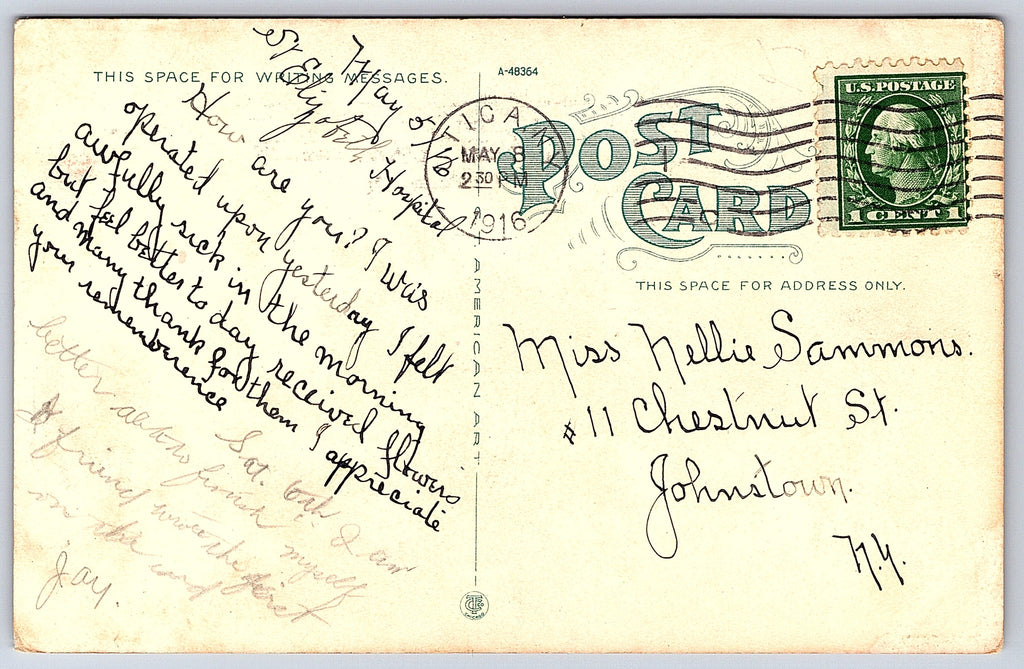 THIS SPACE FOR WRITING MESSAGES.
A-48364
May 5/16
St Elizabeth Hospital
How are you? I was
operated upon yesterday I felt
awfully sick in the morning
but feel better to day received flowers
and many thanks for them I appreciate
your remembrance
Sat. Oct. I am
better able to finish myself
A friend wrote the first
on the card
Jay.
UTICA N.Y.
MAY 8
2 30 PM
1916
POST
CARD
U.S. POSTAGE
1 CENT 1
AMERICAN ART
THIS SPACE FOR ADDRESS ONLY.
Miss Nellie Sammons.
#11 Chestnut St.
Johnstown.
N.Y.